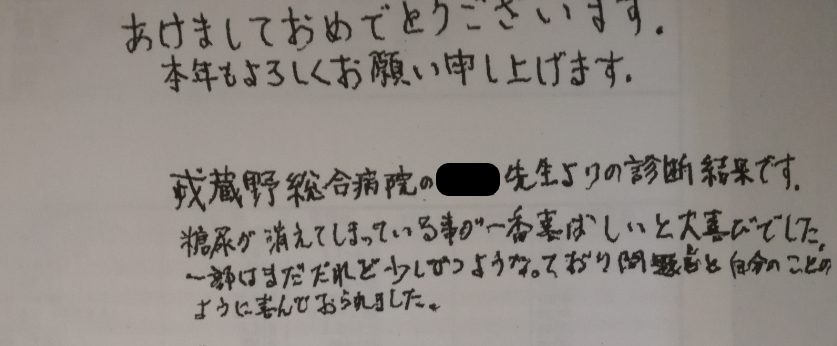 あけましておめでとうございます.
本年もよろしくお願い申し上げます.
蔵野総合病院の 先生よりの診断結果です.
糖尿が消えてしまっている事が一番喜ばしいと大喜びでした。
一部はまだだれど少しずつようなっており問題 と自分のことの
ように喜んでおられました。